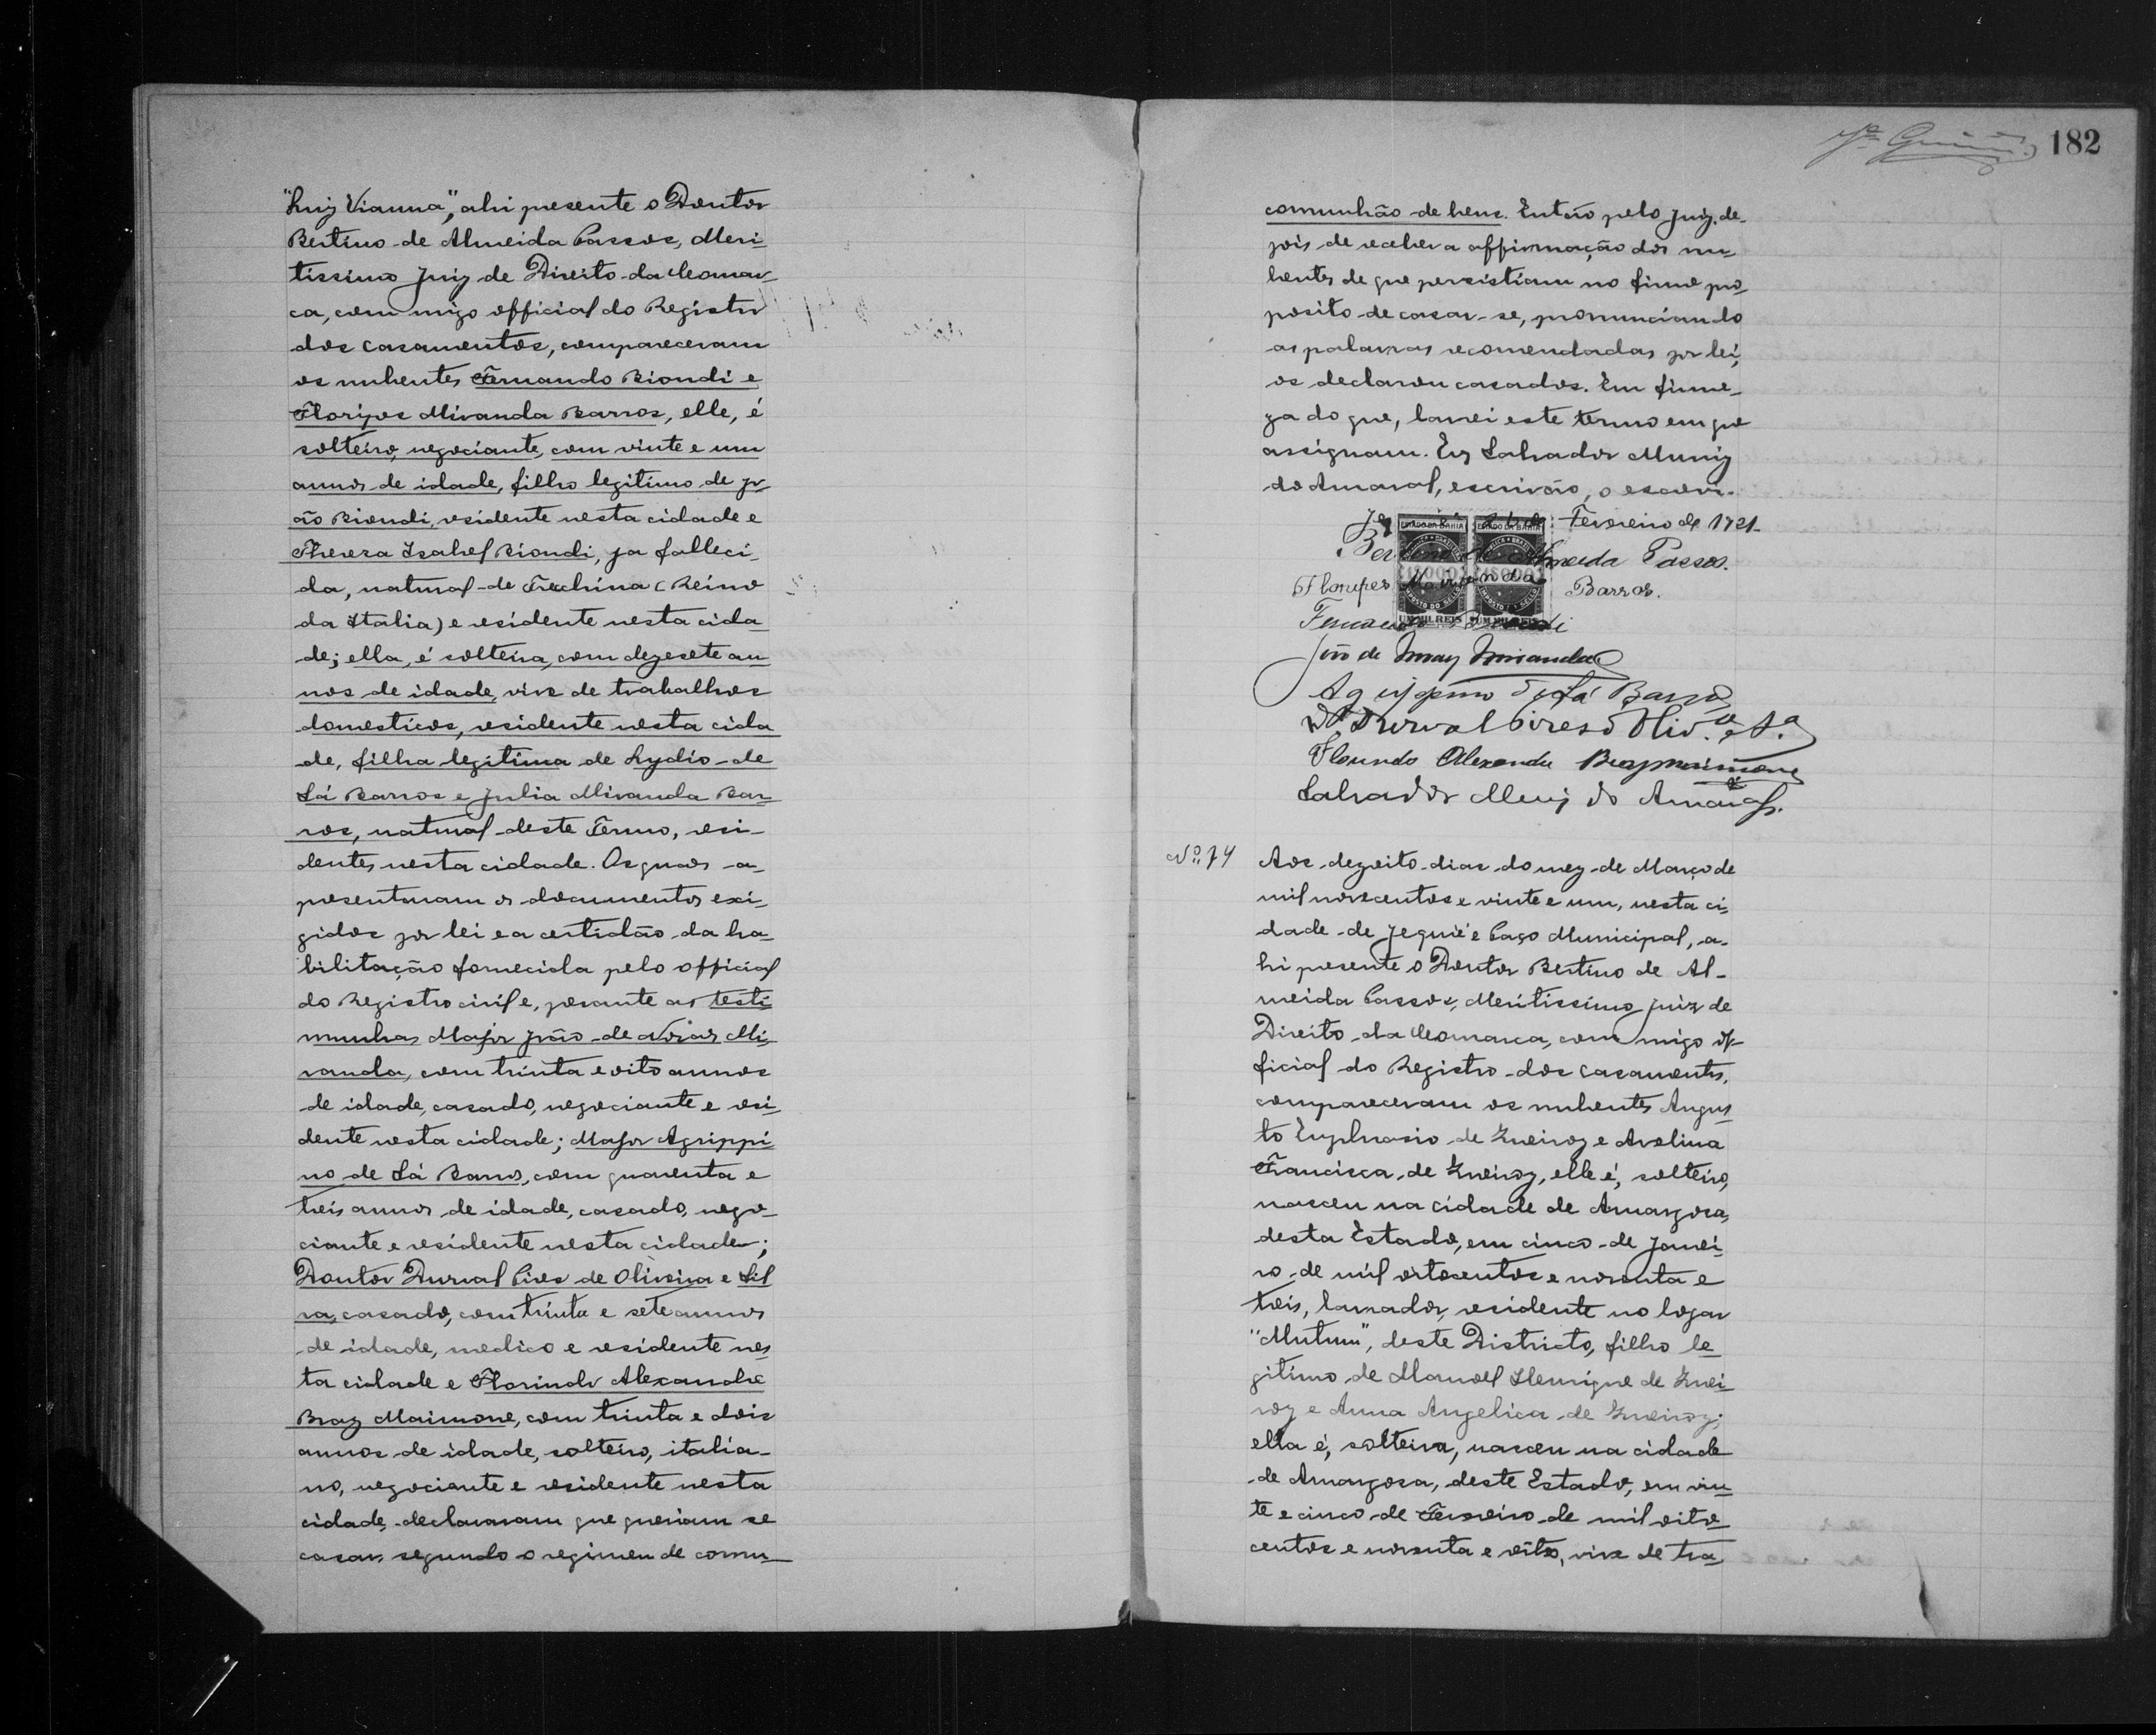 "Luiz Vianna", ahi presente o Doutor
Bertino de Almeida Passos, Meri-
tissimo Juiz de Direito da Comar-
ca, com migo official do Registro
dos casamentos, compareceram
os nubentes Fernando Biondi e
Floripes Miranda Barros, elle, é
solteiro, negociante, com vinte e um
annos de idade, filho legitimo de Jo-
ão Biondi, residente nesta cidade e
Thereza Izabel Biondi, ja falleci-
da, natural de Trechina (Reino
da Italia) e residente nesta cida-
de; ella, é solteira, com dezesete an-
nos de idade, vive de trabalhos
domesticos, residente nesta cida
de, filha legitima de Lydio de
Sá Barros e Julia Miranda Bar-
ros, natural deste Termo, resi-
dentes nesta cidade. Os quaes a-
presentaram os documentos exi-
gidos por lei e a certidão da ha-
bilitação fornecida pelo official
do Registro civil e, perante as testi-
munhas Major João de Novaes Mi-
randa, com trinta e oito annos
de idade, casado, negociante e resi-
dente nesta cidade; Major Agrippi-
no de Sá Barros, com quarenta e
treis annos de idade, casado, nego-
ciante e residente nesta cidade;
Doutor Durval Pires de Oliveira e Sil
va, casado, com trinta e sete annos
de idade, medico e residente nes
ta cidade e Florindo Alexandre
Braz Maimone, com trinta e dois
annos de idade, solteiro, italia-
no, negociante e residente nesta
cidade, declararam que queriam se
casar segundo o regimen de comu-
182
comunhão de bens. Então pelo Juiz, de-
pois de receber a affirmação dos nu-
bentes de que persistiam no firme pro-
posito de casar-se, pronunciando
as palavras recomendadas por lei,
os declarou casados. Em firme-
za do que, lavrei este termo em que
assignam. Eu Salvador Muniz
do Amaral, escrivão, o escrevi.
Fevereiro de 1921
Bertino de Almeida Passos.
Floripes Miranda Barros.
Fernando Biondi
ESTADO DA BAHIA ESTADO DA BAHIA
1$000 1$000
IMPOSTO DO SELLO IMPOSTO DO SELLO
UM MIL REIS UM MIL REIS
João de Novaes Miranda
Agrippino de Sá Barros
Dr Durval Pires d Oliv.ra e S.a
Florindo Alexandre Braz Maimone
Salvador Muniz do Amaral.
No. 74
Aos dezoito dias do mez de Março de
mil novecentos e vinte e um, nesta ci-
dade de Jequié e Paço Municipal, a-
hi presente o Doutor Bertino de Al-
meida Passos, Meritissimo Juiz de
Direito da Comarca, com migo of-
ficial do Registro dos casamentos,
compareceram os nubentes Augus-
to Euphrasio de Queiroz e Avelina
Francisca de Queiroz, elle é, solteiro,
nasceu na cidade de Amargosa,
desta Estado, em cinco de Janei-
ro de mil oitocentos e noventa e
treis, lavrador, residente no logar
"Mutum", deste Districto, filho le-
gitimo de Manoel Henrique de Quei-
roz e Anna Angelica de Queiroz;
ella é, solteira, nasceu na cidade
de Amargosa, deste Estado, em vin-
te e cinco de Fevereiro de mil oito-
centos e noventa e oito, vive de tra-